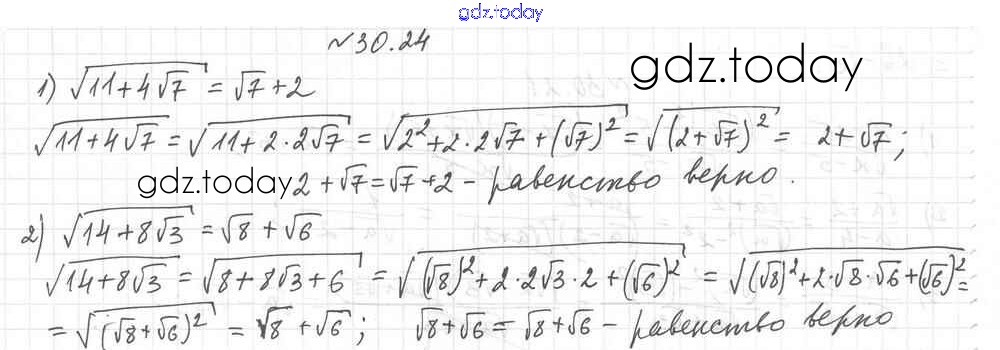 gdz.today
№30.24
gdz.today
1) √(11+4√7) = √7+2
√(11+4√7) = √(11+2·2√7) = √(2²+2·2√7+(√7)²) = √((2+√7)²) = 2+√7;
gdz.today 2+√7=√7+2 – равенство верно.
2) √(14+8√3) = √8+√6
√(14+8√3) = √(8+8√3+6) = √((√8)²+2·2√3·2+(√6)²) = √((√8)²+2·√8·√6+(√6)²) =
= √((√8+√6)²) = √8+√6; √8+√6 = √8+√6 – равенство верно